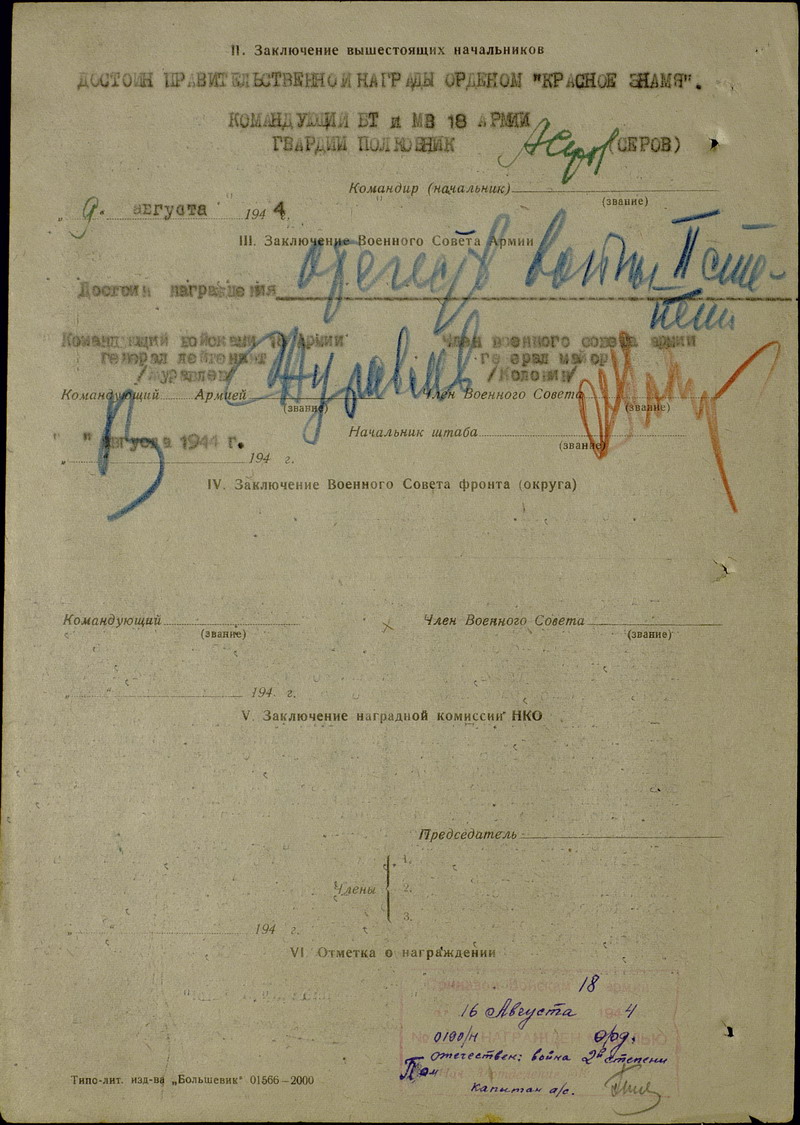 II. Заключение вышестоящих начальников
ДОСТОИН ПРАВИТЕЛЬСТВЕННОЙ НАГРАДЫ ОРДЕНОМ "КРАСНОЕ ЗНАМЯ".
КОМАНДУЮЩИЙ БТ и МВ 18 АРМИИ
ГВАРДИИ ПОЛКОВНИК (СЕРОВ)
Командир (начальник)
(звание)
„ 9. августа 1944.
III. Заключение Военного Совета Армии
Достоин награждения Отечеств войны II степени
Командующий войсками 18 Армии Член военного совета армии
генерал лейтенант генерал майор
/Журавлев/ /Колонин/
Командующий Армией Член Военного Совета
(звание) (звание)
Начальник штаба
(звание)
" " Августа 1944 г.
„ 194 г.
IV. Заключение Военного Совета фронта (округа)
Командующий Член Военного Совета
(звание) (звание)
„ " 194 г.
V. Заключение наградной комиссии НКО
Председатель
Члены
1.
2.
3.
„ " 194 г.
VI Отметка о награждении
18
16 Августа 4
0190/н орд.
отечествен: война 2й степени
Пом
капитан а/с.
Типо-лит. изд-ва „Большевик" 01566–2000